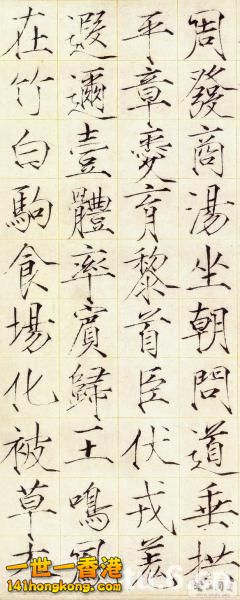 周發商湯坐朝問道垂拱
平章愛育黎首臣伏戎羌
遐邇壹體率賓歸王鳴鳳
在竹白駒食場化被草木
一世一香港
141hongkong.com